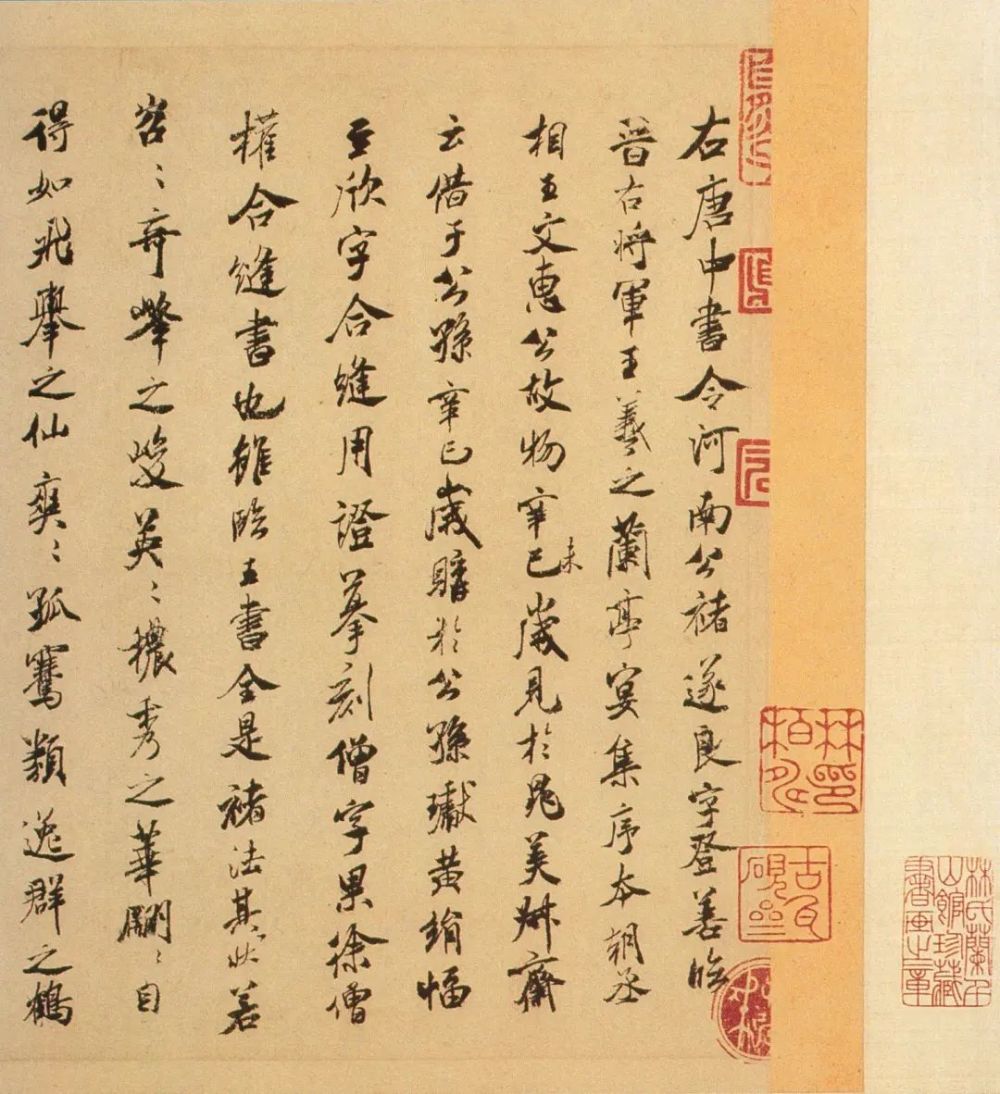 右唐中書令河南公褚遂良字登善臨
晉右將軍王羲之蘭亭宴集序本朝丞
相王文惠公故物辛巳未歲見於晁美叔齋
云借于公孫辛巳歲購於公孫瓛黃絹幅
至欣字合縫用證摹刻僧字果徐僧
權合縫書也雖臨王書全是褚法其狀若
岩〻奇峰之峻英〻穠秀之華翩〻自
得如飛舉之仙爽〻孤騫類逸群之鶴
林氏蘭千
山館珍藏
書畫之章